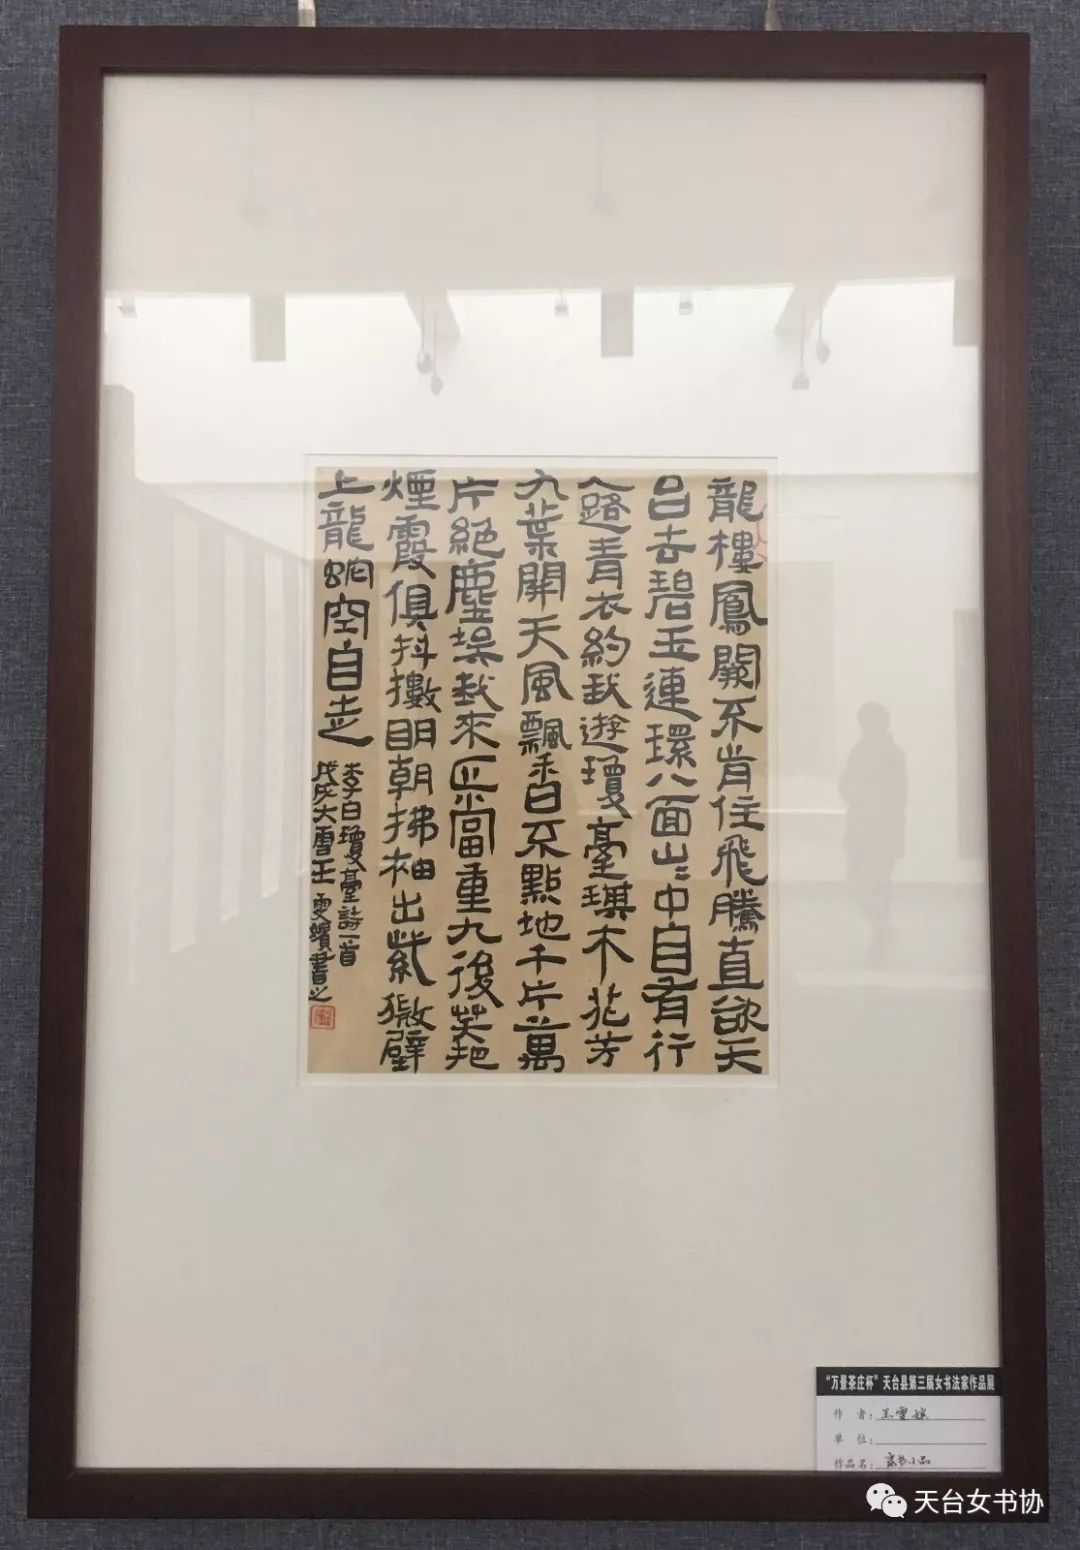 龍樓鳳闕不肯住飛騰直欲天
台去碧玉連環八面山〻中自有行
人路青衣約我遊瓊臺琪木花芳
九葉開天風飄香不點地千片萬
片絕塵埃我來正當重九後笑把
煙霞俱抖擻明朝拂袖出紫微壁
上龍蛇空自走
李白瓊臺詩一首
戊戌大雪王雯書之
“万景茶庄杯”天台县第三届女书法家作品展
作 者：王雯
单 位：
作品名：隶书小品
天台女书协